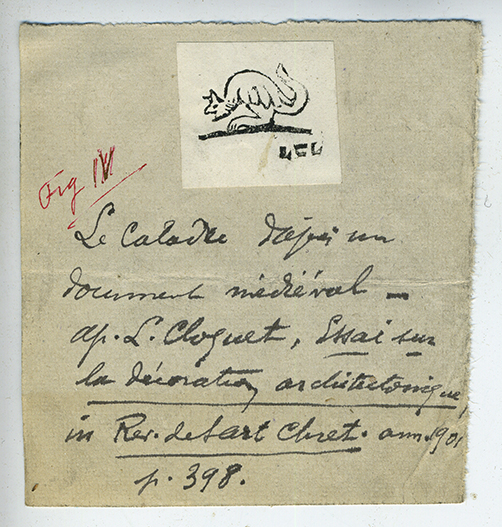 LCL
Fig IV
Le Caladre d'après un
document médiéval —
ap. L. Cloquet, Essai sur
la décoration architectonique,
in Rev. de l'art Chret. ann. 1901
p. 398.